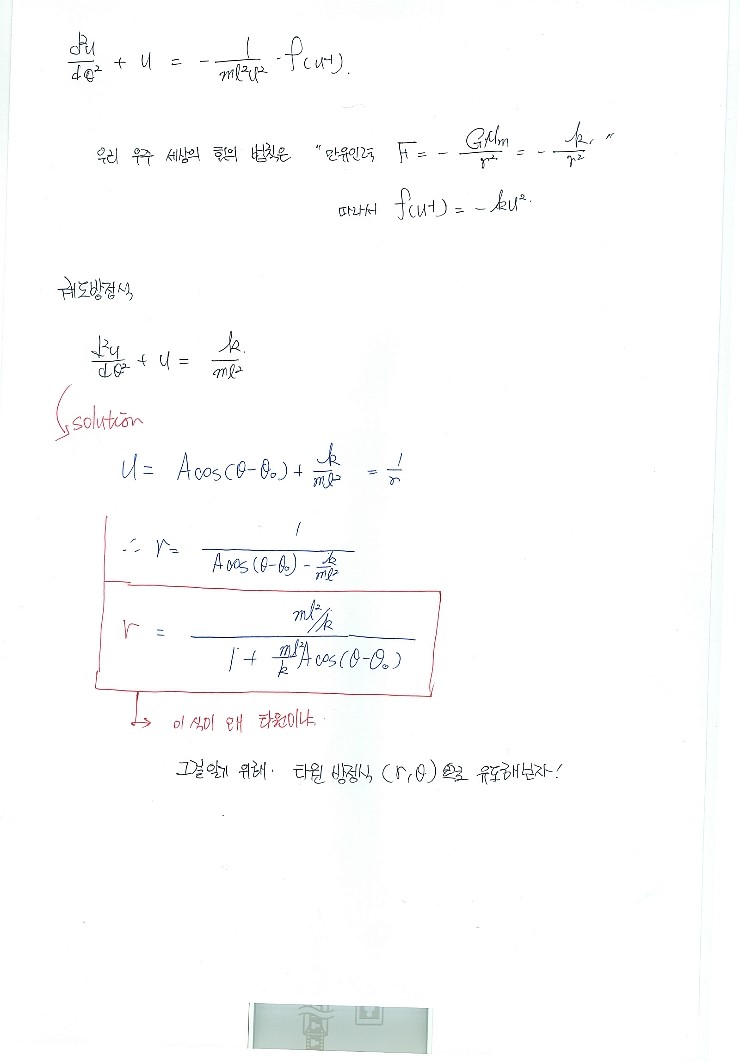 d²u/dθ² + u = - 1/ml²u² · f(u⁻¹).
우리 우주 세상의 힘의 법칙은 "만유인력 F = - GMm/r² = - k/r²"
따라서 f(u⁻¹) = - ku².
궤도방정식
d²u/dθ² + u = k/ml²
solution
u = A cos(θ-θ₀) + k/ml² = 1/r
∴ r = 1/(A cos(θ-θ₀) - k/ml²)
r = (ml²/k)/(1 + ml²/k A cos(θ-θ₀))
→ 이 식이 왜 타원이냐.
그걸 알기 위해. 타원 방정식 (r, θ)으로 유도해보자!